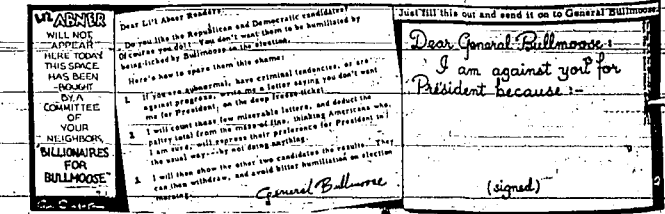 LI'L ABNER
WILL NOT
APPEAR
HERE TODAY
THIS SPACE
HAS BEEN
BOUGHT
BY A
COMMITTEE
OF
YOUR
NEIGHBORS,
"BILLIONAIRES
FOR
BULLMOOSE"
Dear Li'l Abner Readers:
Do you like the Republican and Democratic candidates?
Of course you do!! You don't want them to be humiliated by
being licked by Bullmoose in the election.
Here's how to spare them this shame:
1. If you are subnormal, have criminal tendencies, or are
against progress, write me a letter saying you don't want
me for President, on the deep freeze ticket.
2. I will count those few miserable letters, and deduct the
paltry total from the mass of fine, thinking Americans who,
I am sure, will express their preference for President in
the usual way--by not doing anything.
3. I will then show the other two candidates the results. They
can then withdraw, and avoid bitter humiliation on election
morning.
General Bullmoose
Just fill this out and send it on to General Bullmoose.
Dear General Bullmoose:
I am against you for
President because :-
(signed)